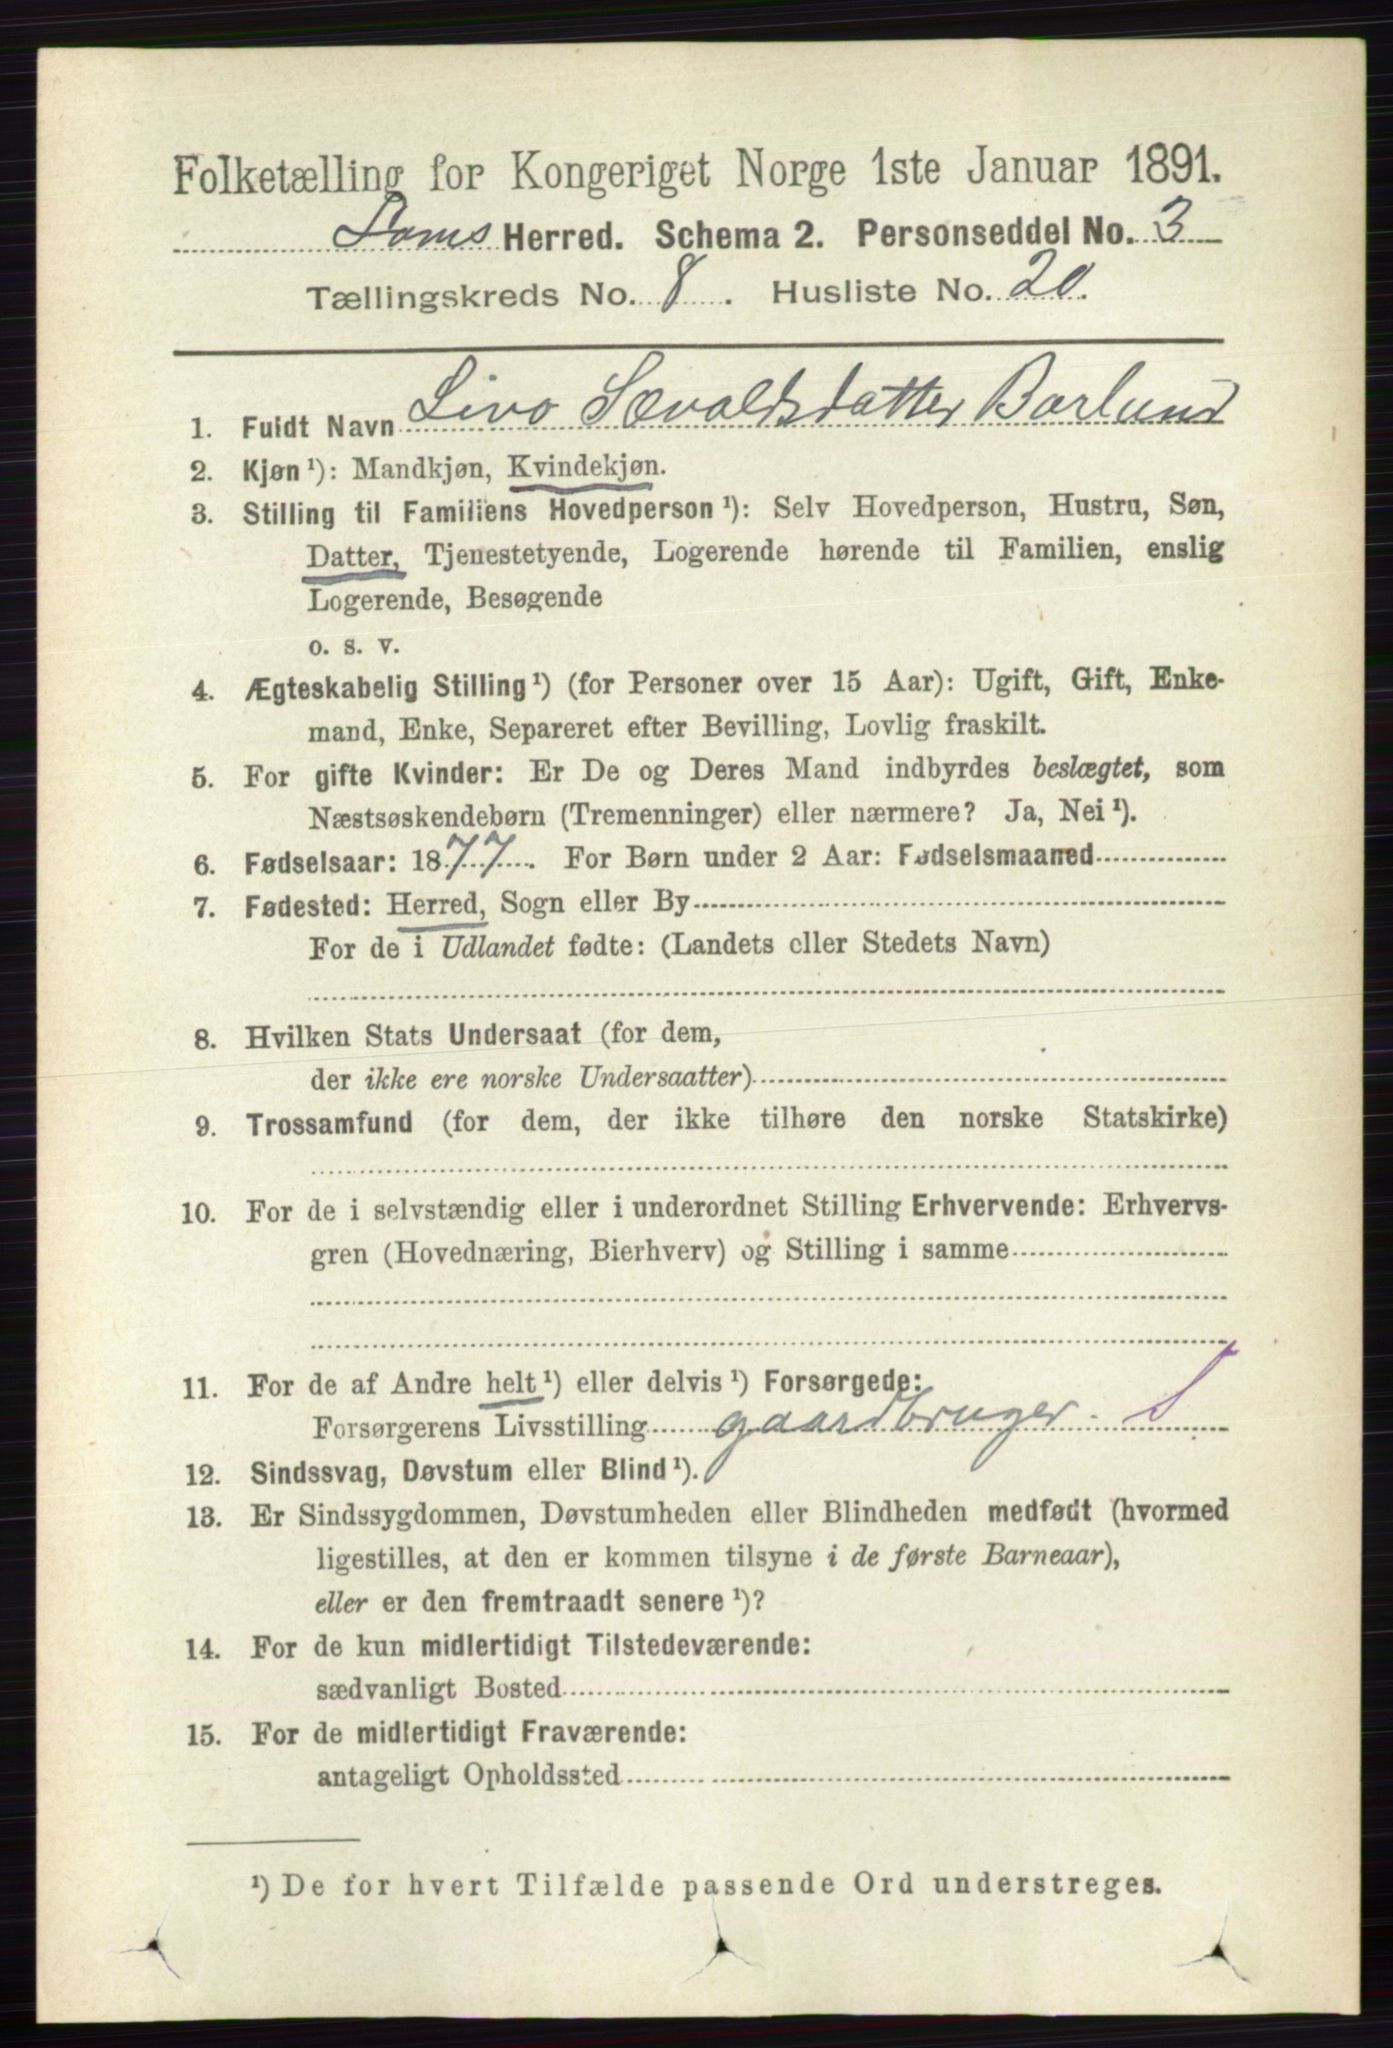 Folketælling for Kongeriget Norge 1ste Januar 1891.
Loms Herred. Schema 2. Personseddel No. 3
Tællingskreds No. 8. Husliste No. 20.
1. Fuldt Navn Livo Sævaldsdatter Barlund
2. Kjøn¹): Mandkjøn, Kvindekjøn.
3. Stilling til Familiens Hovedperson¹): Selv Hovedperson, Hustru, Søn,
Datter, Tjenestetyende, Logerende hørende til Familien, enslig
Logerende, Besøgende
o. s. v.
4. Ægteskabelig Stilling¹) (for Personer over 15 Aar): Ugift, Gift, Enke-
mand, Enke, Separeret efter Bevilling, Lovlig fraskilt.
5. For gifte Kvinder: Er De og Deres Mand indbyrdes beslægtet, som
Næstsøskendebørn (Tremenninger) eller nærmere? Ja, Nei¹).
6. Fødselsaar: 1877. For Børn under 2 Aar: Fødselsmaaned
7. Fødested: Herred, Sogn eller By
For de i Udlandet fødte: (Landets eller Stedets Navn)
8. Hvilken Stats Undersaat (for dem,
der ikke ere norske Undersaatter)
9. Trossamfund (for dem, der ikke tilhøre den norske Statskirke)
10. For de i selvstændig eller i underordnet Stilling Erhvervende: Erhvervs-
gren (Hovednæring, Bierhverv) og Stilling i samme
11. For de af Andre helt¹) eller delvis¹) Forsørgede:
Forsørgerens Livsstilling gaardbruger. S
12. Sindssvag, Døvstum eller Blind¹).
13. Er Sindssygdommen, Døvstumheden eller Blindheden medfødt (hvormed
ligestilles, at den er kommen tilsyne i de første Barneaar),
eller er den fremtraadt senere¹)?
14. For de kun midlertidigt Tilstedeværende:
sædvanligt Bosted
15. For de midlertidigt Fraværende:
antageligt Opholdssted
¹) De for hvert Tilfælde passende Ord understreges.